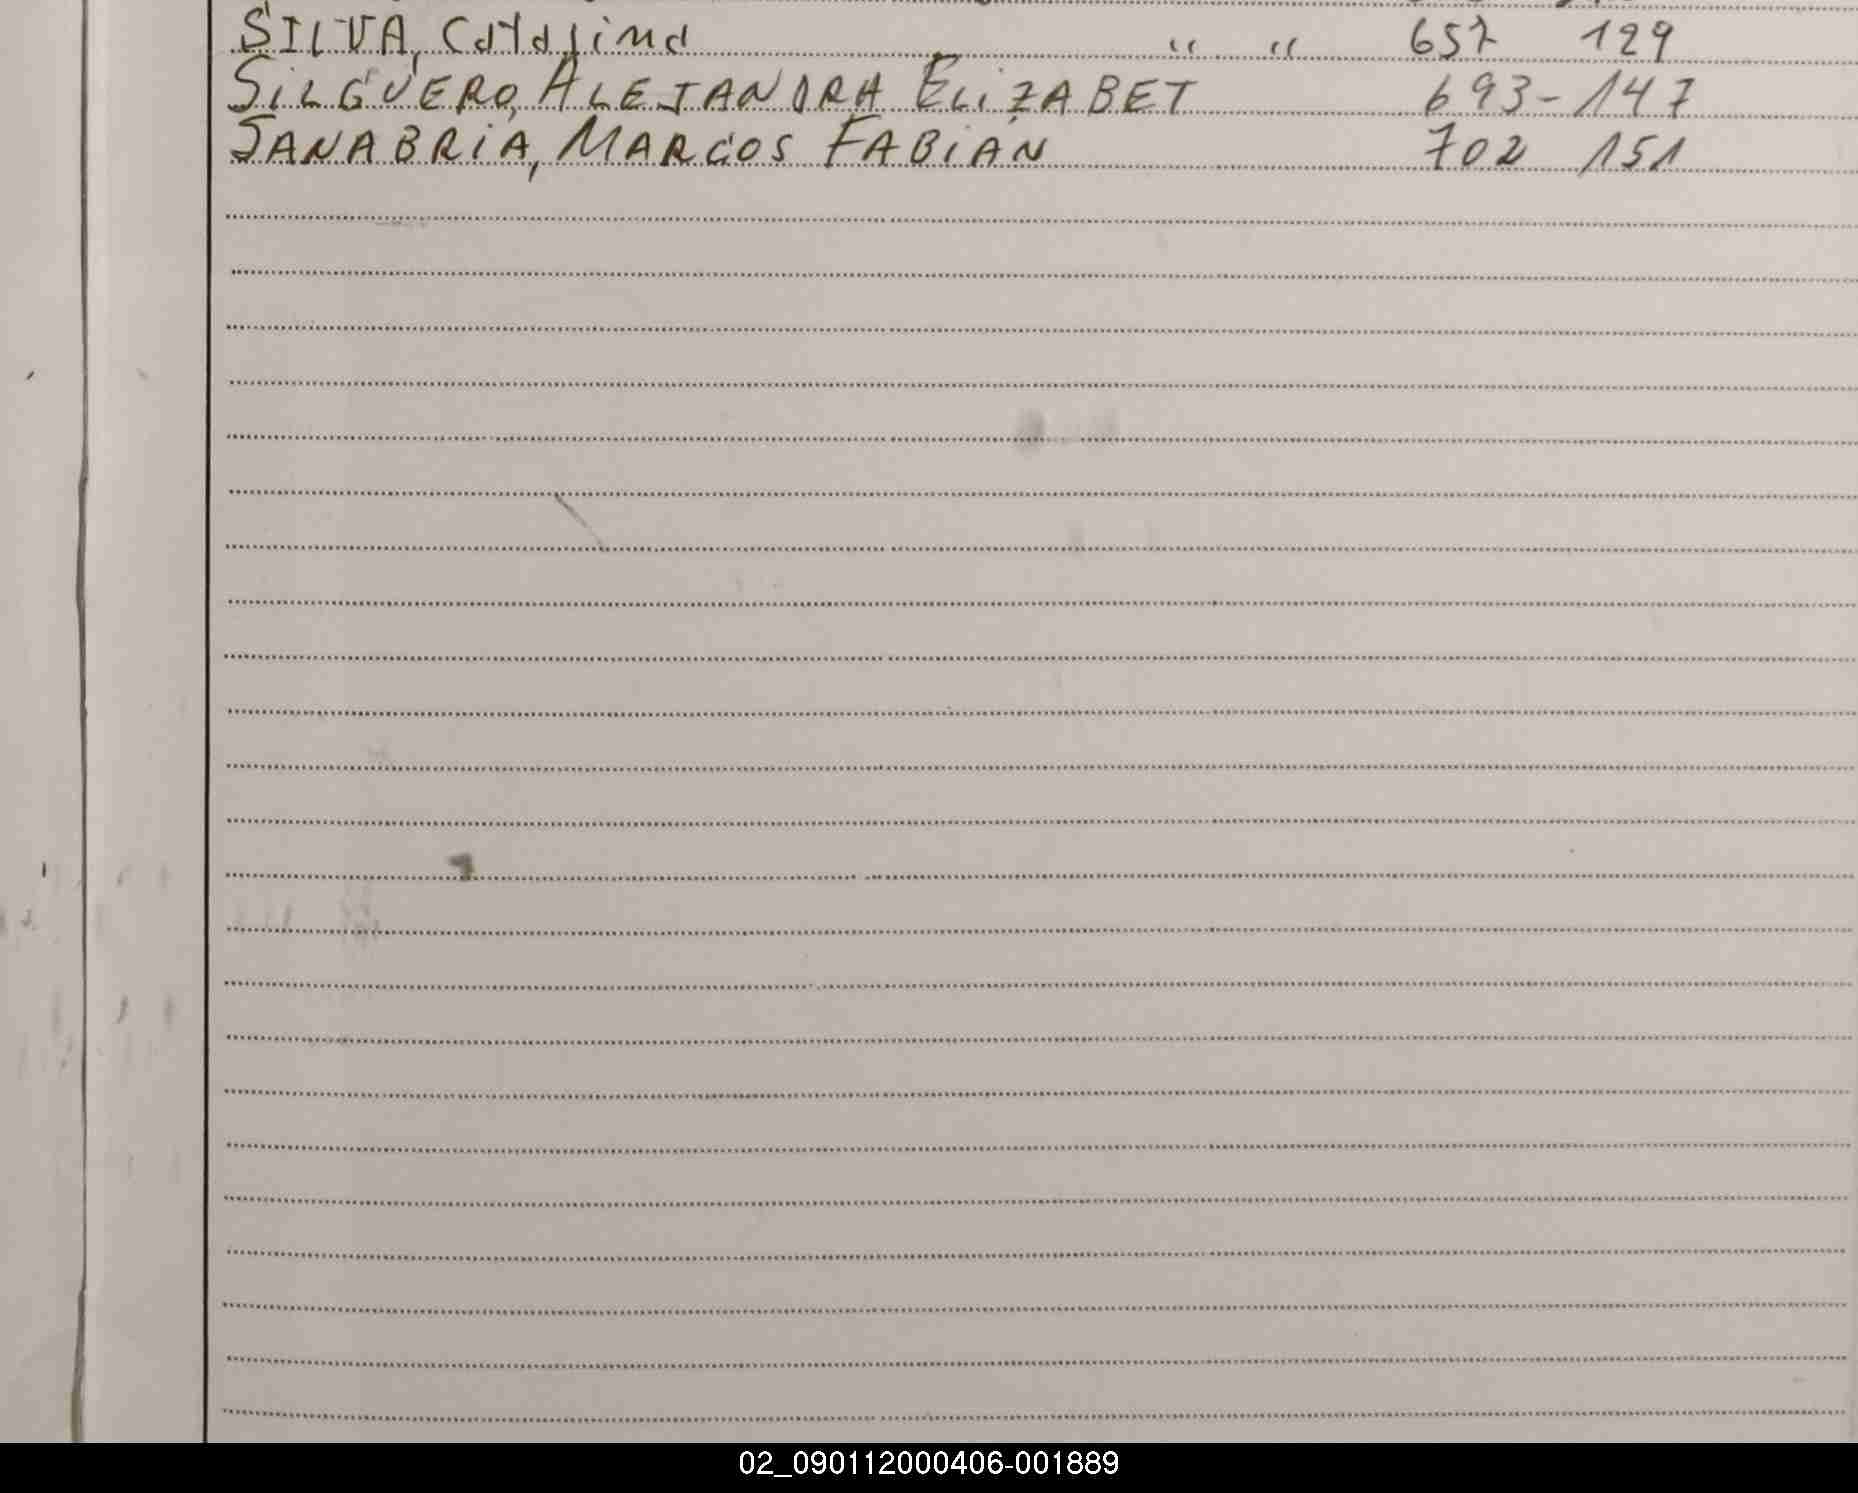 SILVA, Catalina " " 657 129
SILGUERO, ALEJANDRA ELIZABET 693-147
SANABRIA, MARCOS FABIÁN 702 151
02_090112000406-001889